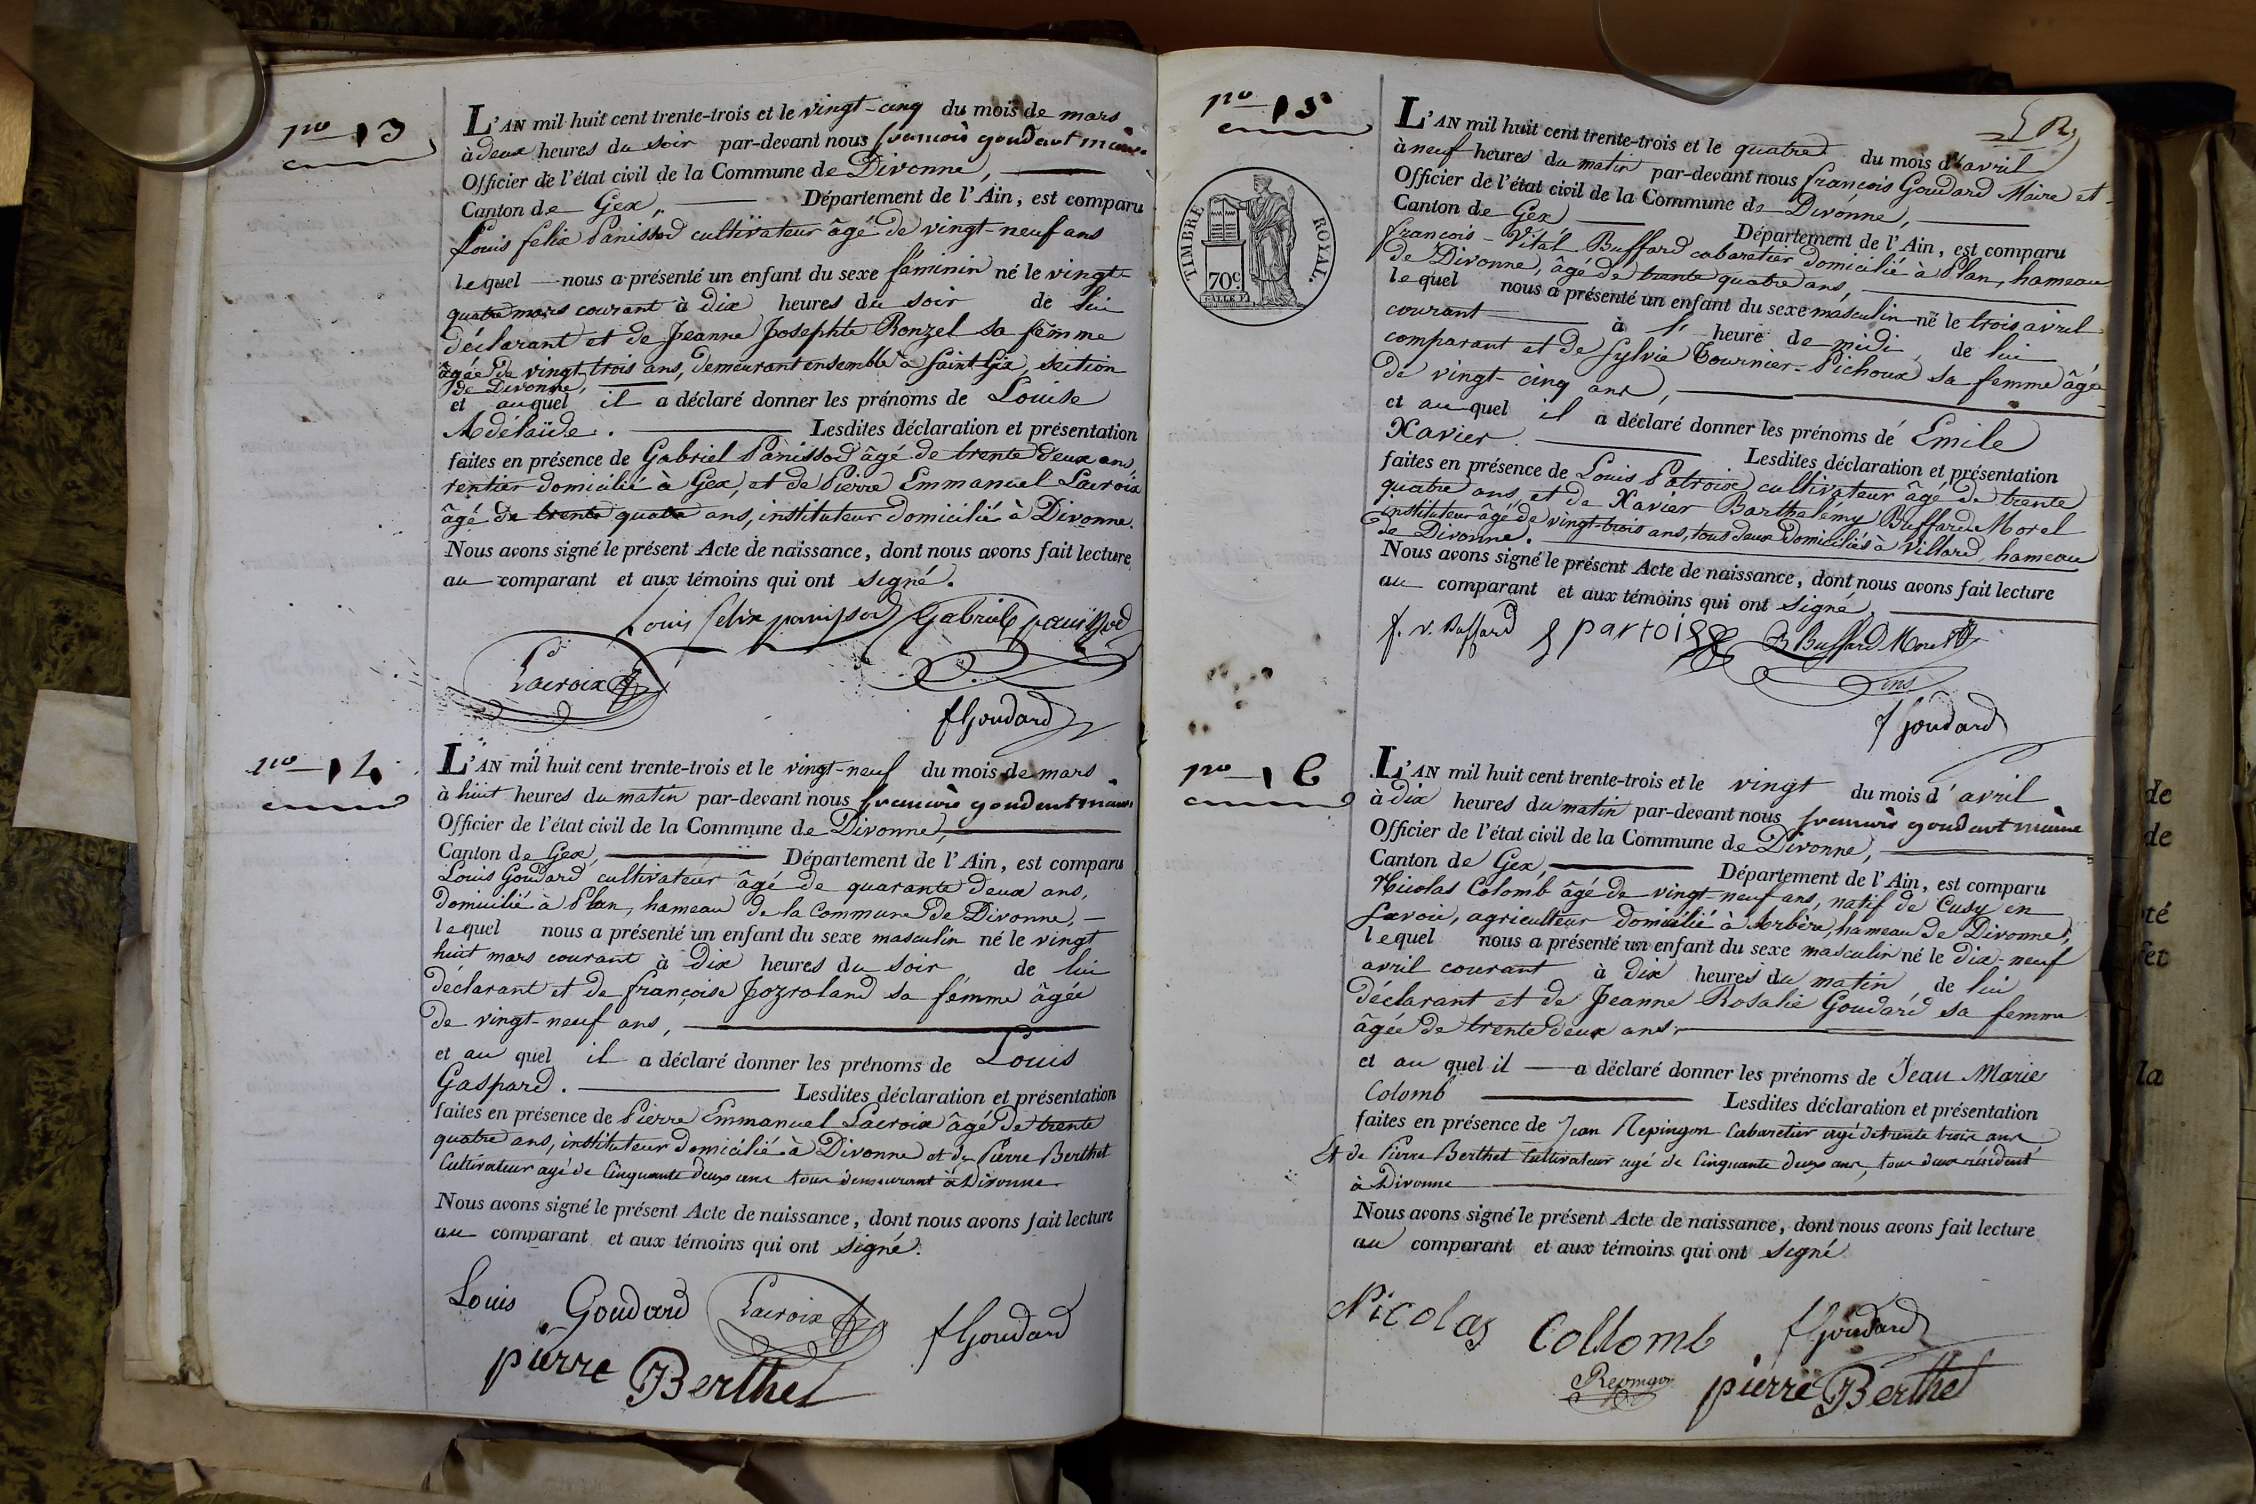 nº 13
L'AN mil huit cent trente-trois et le vingt-cinq du mois de mars
à deux heures du soir par-devant nous françois goudard maire
Officier de l'état civil de la Commune de Divonne,
Canton de Gex, Département de l'Ain, est comparu
Louis felix Panissod cultivateur âgé de vingt-neuf ans
lequel nous a présenté un enfant du sexe féminin né le vingt
quatre mars courant à dix heures du soir de lui
déclarant et de Jeanne Josephte Ronzel sa femme
âgée de vingt-trois ans, demeurant ensemble à Saint Gix, section
de Divonne,
et auquel il a déclaré donner les prénoms de Louise
Adélaïde. Lesdites déclaration et présentation
faites en présence de Gabriel Panissod âgé de trente deux ans,
rentier domicilié à Gex, et de Pierre Emmanuel Lacroix
âgé de trente quatre ans, instituteur domicilié à Divonne.
Nous avons signé le présent Acte de naissance, dont nous avons fait lecture
au comparant et aux témoins qui ont signé.
Louis felix panissod Gabriel panissod
Lacroix
f Goudard
nº 14
L'AN mil huit cent trente-trois et le vingt-neuf du mois de mars
à huit heures du matin par-devant nous françois goudard maire
Officier de l'état civil de la Commune de Divonne,
Canton de Gex, Département de l'Ain, est comparu
Louis Goudard cultivateur âgé de quarante deux ans,
domicilié à Plan, hameau de la Commune de Divonne,
lequel nous a présenté un enfant du sexe masculin né le vingt
huit mars courant à dix heures du soir de lui
déclarant et de françoise Jozroland sa femme âgée
de vingt-neuf ans,
et au quel il a déclaré donner les prénoms de Louis
Gaspard. Lesdites déclaration et présentation
faites en présence de Pierre Emmanuel Lacroix âgé de trente
quatre ans, instituteur domicilié à Divonne et de Pierre Berthet
Cultivateur agé de Cinquante deux ans tous demeurant à Divonne
Nous avons signé le présent Acte de naissance, dont nous avons fait lecture
au comparant et aux témoins qui ont signé.
Louis Goudard Lacroix f Goudard
pierre Berthet
nº 15
TIMBRE ROYAL.
70c.
L'AN mil huit cent trente-trois et le quatre du mois d'avril
à neuf heures du matin par-devant nous françois Goudard Maire et
Officier de l'état civil de la Commune de Divonne,
Canton de Gex, Département de l'Ain, est comparu
françois-Vital Buffard cabaretier domicilié à Plan, hameau
de Divonne, âgé de trente quatre ans,
lequel nous a présenté un enfant du sexe masculin né le trois avril
courant à l' heure de midi, de lui
comparant et de Sylvie Tournier-Pichoux sa femme âgée
de vingt-cinq ans,
et au quel il a déclaré donner les prénoms de Emile
Xavier. Lesdites déclaration et présentation
faites en présence de Louis Patroix cultivateur âgé de trente
quatre ans, et de Xavier Barthelémy Buffard Morel
instituteur âgé de vingt-trois ans, tous deux domiciliés à Villard, hameau
de Divonne.
Nous avons signé le présent Acte de naissance, dont nous avons fait lecture
au comparant et aux témoins qui ont signé,
f. v. Buffard partois B Buffard Morel
ins
f Goudard
nº 16
L'AN mil huit cent trente-trois et le vingt du mois d'avril
à dix heures du matin par-devant nous françois goudard maire
Officier de l'état civil de la Commune de Divonne,
Canton de Gex, Département de l'Ain, est comparu
Nicolas Colomb âgé de vingt-neuf ans, natif de Cusy en
Savoie, agriculteur domicilié à Arbère, hameau de Divonne,
lequel nous a présenté un enfant du sexe masculin né le dix-neuf
avril courant à dix heures du matin de lui
déclarant et de Jeanne Rosalie Goudard sa femme
âgée de trente deux ans,
et au quel il a déclaré donner les prénoms de Jean Marie
Colomb Lesdites déclaration et présentation
faites en présence de Jean Repingon Cabaretier agé de trente trois ans
Et de Pierre Berthet Cultivateur agé de Cinquante deux ans, tous deux résident
à Divonne
Nous avons signé le présent Acte de naissance, dont nous avons fait lecture
au comparant et aux témoins qui ont signé
Nicolas Collomb f Goudard
Repingon pierre Berthet
de
de
té
et
la